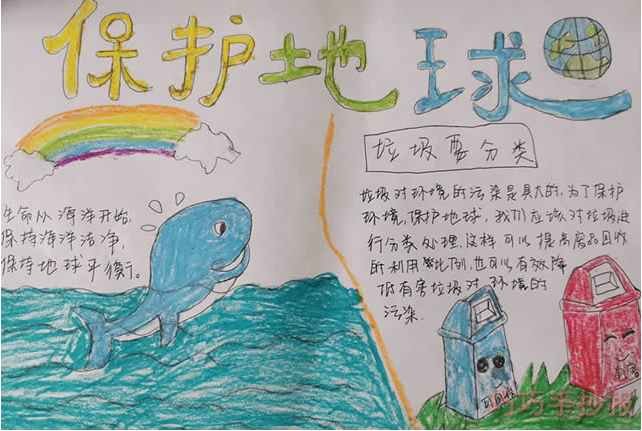 保护地球
生命从海洋开始,
保持海洋洁净,
保持地球平衡。
垃圾要分类
垃圾对环境的污染是具大的,为了保护
环境,保护地球,我们应该对垃圾进
行分类处理,这样可以提高废品回收
的利用 比例,也可以有效降
低有害垃圾对环境的
污染.
可回收
有害
巧巧手抄报